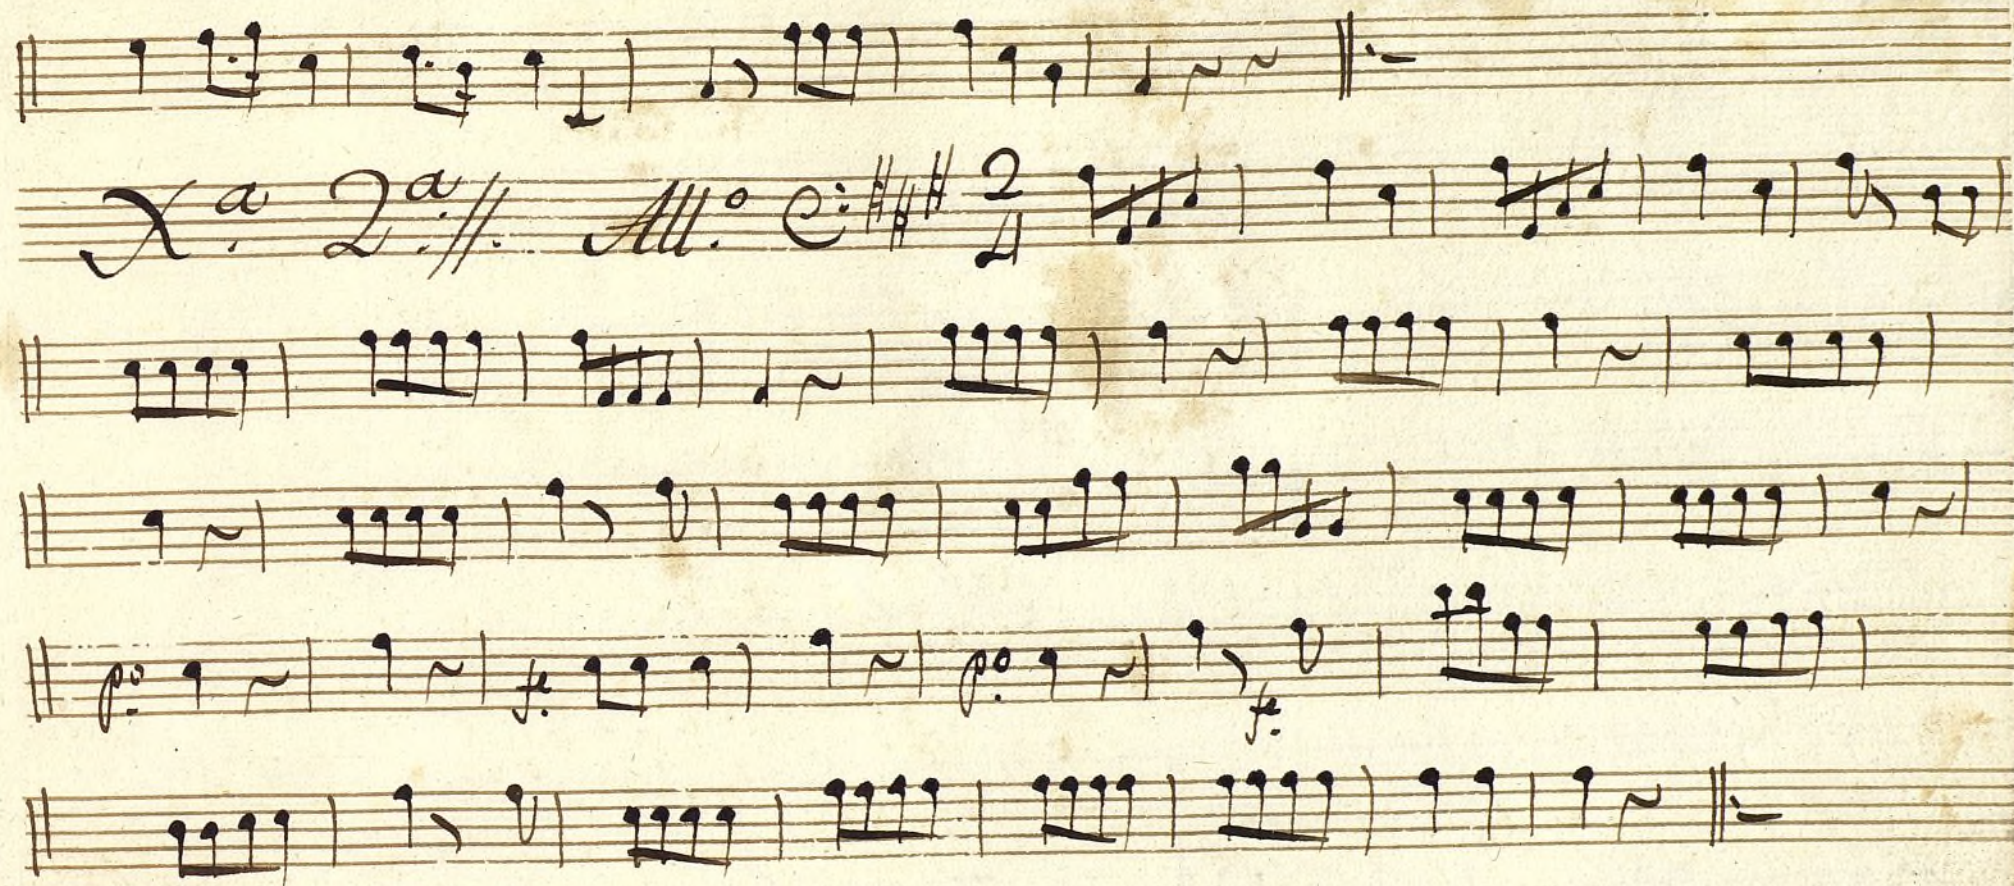 Xª 2ª:// All.º 2 4
pº: fe. pº. fe.